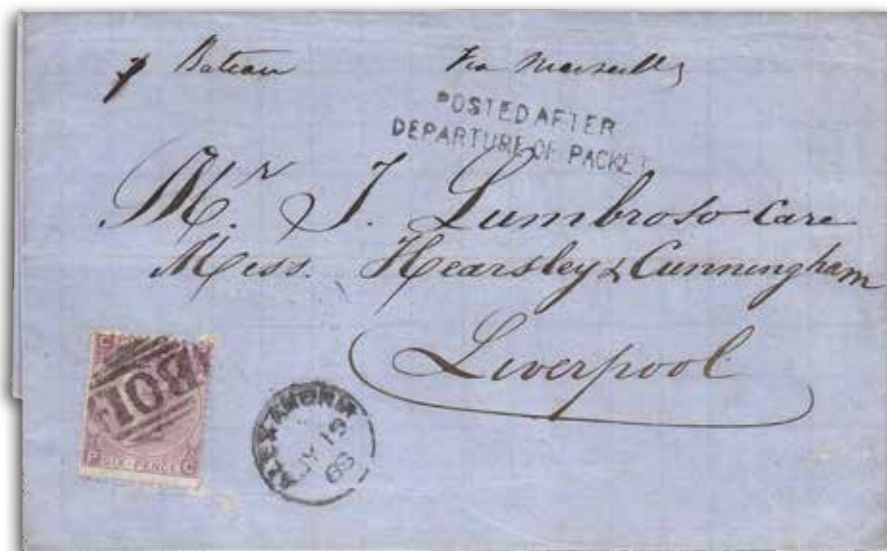 Bateau Via Marseilles
POSTED AFTER
DEPARTURE OF PACKET
Mr J. Lumbroso Care
Mess. Hearsley & Cunningham
Liverpool
B01
P SIX-PENCE C
ALEXANDRIA
19